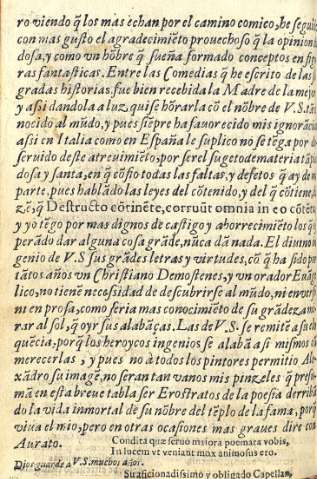 ro viendo q̃ los mas echan por el camino comico, he seguido
con mas gusto el agradecimiẽto prouechoso q̃ la opinion
dosa, y como vn hõbre q̃ sueña formado conceptos en fi
ras fantasticas. Entre las Comedias q̃ he escrito de las
gradas historias, fue bien recebida la Madre de la mejor
y assi dandola a luz, quise hõrarla cõ el nõbre de V.S. tã
nocido al mũdo, y pues siẽpre ha fauorecido mis ignorãcias
assi en Italia como en España le suplico no se tẽga por
seruido deste atreuimiẽto, por ser el sugeto de materia tã
dosa y santa, en q̃ cõfio todas las faltas, y defetos q̃ ay de
parte, pues hablãdo las leyes del cõtenido, y del q̃ cõtiene,
zẽ, q̃ Destructo cõtinẽte, corruũt omnia in eo cõtẽta
y yo tẽgo por mas dignos de castigo y ahorrecimiẽto los q̃
perãdo dar alguna cosa grãde, nũca dã nada. El diuino
genio de V.S sus grãdes letras y virtudes, cõ q̃ ha sido por
tãtos años vn Christiano Demostenes, y vn orador Euã
lico, no tienẽ necessidad de descubrirse al mũdo, ni en verso
ni en prosa, como seria mas conocimiẽto de su grãdeza
rar al sol, q̃ oyr sus alabãças. Las de V.S. se remitẽ a su
quẽcia, porq̃ los heroycos ingenios se alabã a si mismos
merecerlas, y pues no à todos los pintores permitio Ale
xãdro su imagẽ, no seran tan vanos mis pinzeles q̃ presu
mã en esta breue tabla ser Erostratos de la poesia derribã
do la vida inmortal de su nõbre del tẽplo de la fama, porq̃
viua el mio, pero en otras ocasiones mas graues dire con
Aurato.
Condita quæ seruo maiora poemata vobis,
In lucem vt veniant mox animosus ero.
Dios guarde a V.S. muchos años.
Su aficionadissimo y obligado Capellan,